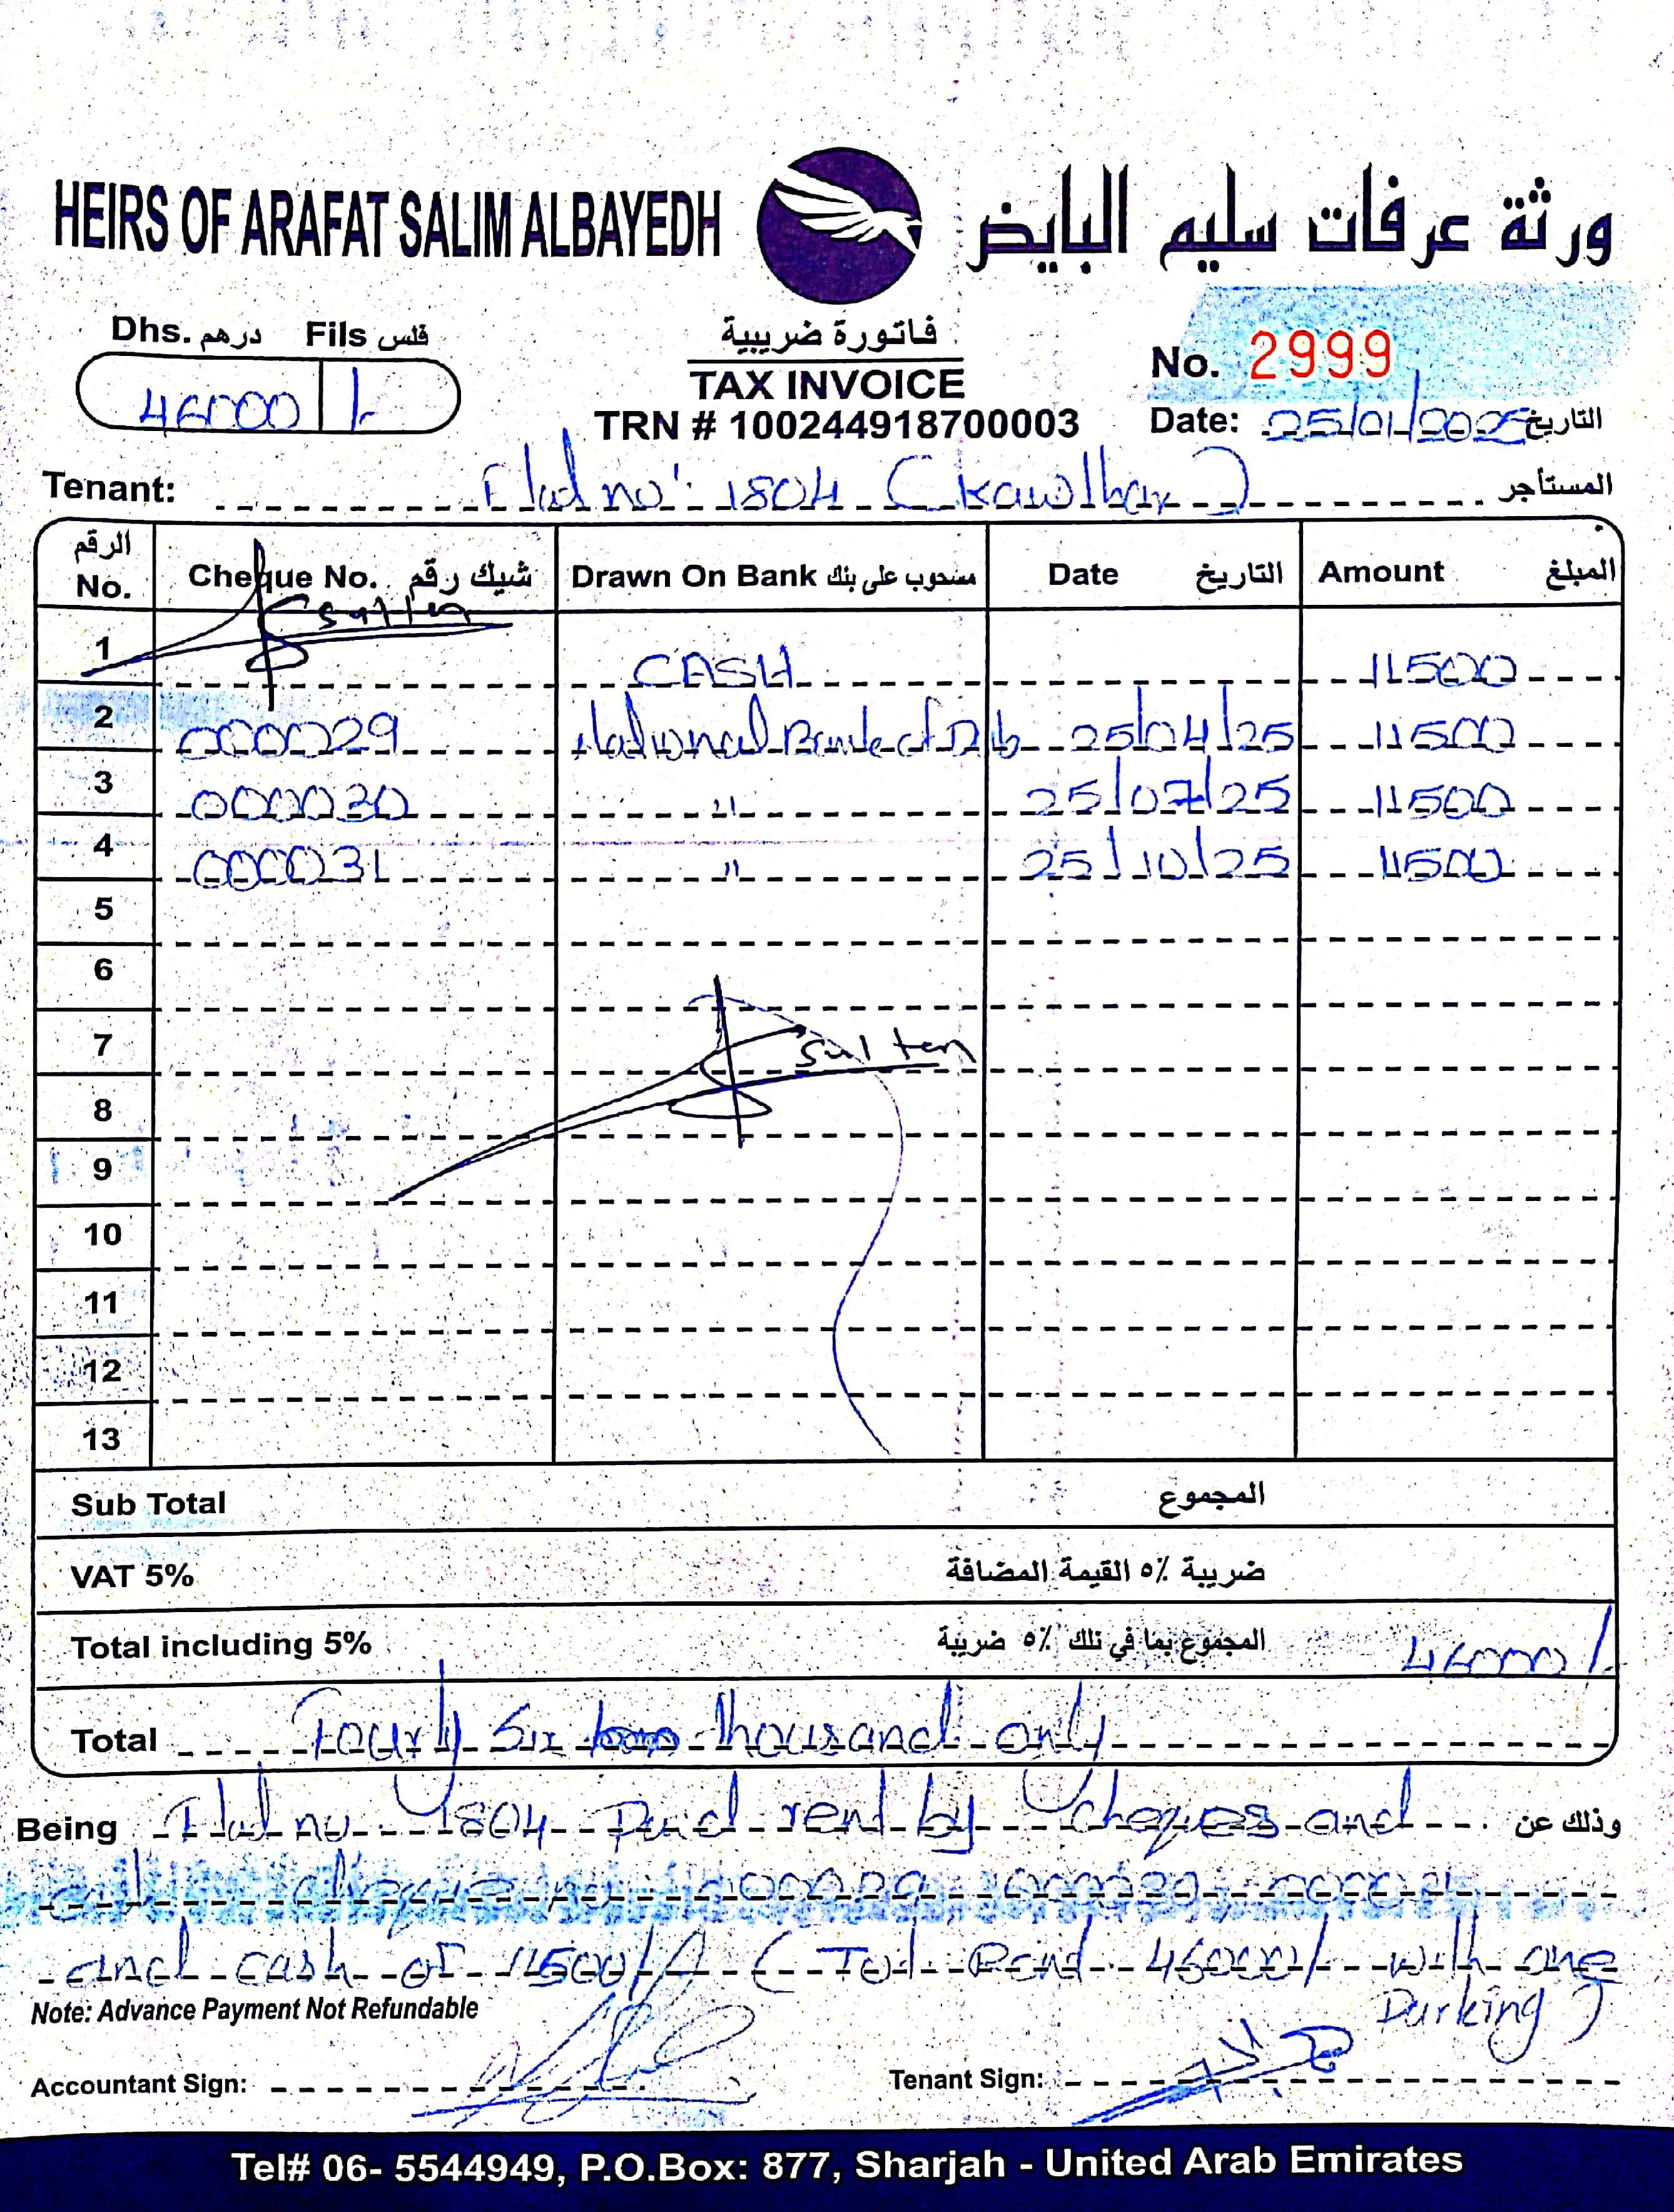 HEIRS OF ARAFAT SALIM ALBAYEDH ورثة عرفات سليم البايض
Dhs. درهم Fils فلس
46000 /-
فاتورة ضريبية
TAX INVOICE
TRN # 100244918700003
No. 2999
Date: 25/01/2025 التاريخ
Tenant: Flat no: 1804 (kawthar) المستأجر
الرقم No. Cheque No. شيك رقم Drawn On Bank مسحوب على بنك Date التاريخ Amount المبلغ
sultan
1 CASH 11500
2 000029 National Bank of 25/04/25 11500
3 000030 " 25/07/25 11500
4 000031 " 25/10/25 11500
5
6
7 sultan
8
9
10
11
12
13
Sub Total المجموع
VAT 5% ضريبة ٥٪ القيمة المضافة
Total including 5% المجموع بما في ذلك ٥٪ ضريبة 46000/-
Total Fourty Six thousand only
Being Flat no 1804 Paid rent by cheques and وذلك عن
cheque no 000029 000030 000031
and cash of 11500/- (Tot Rent 46000/- with one
Parking)
Note: Advance Payment Not Refundable
Accountant Sign: Tenant Sign:
Tel# 06- 5544949, P.O.Box: 877, Sharjah - United Arab Emirates